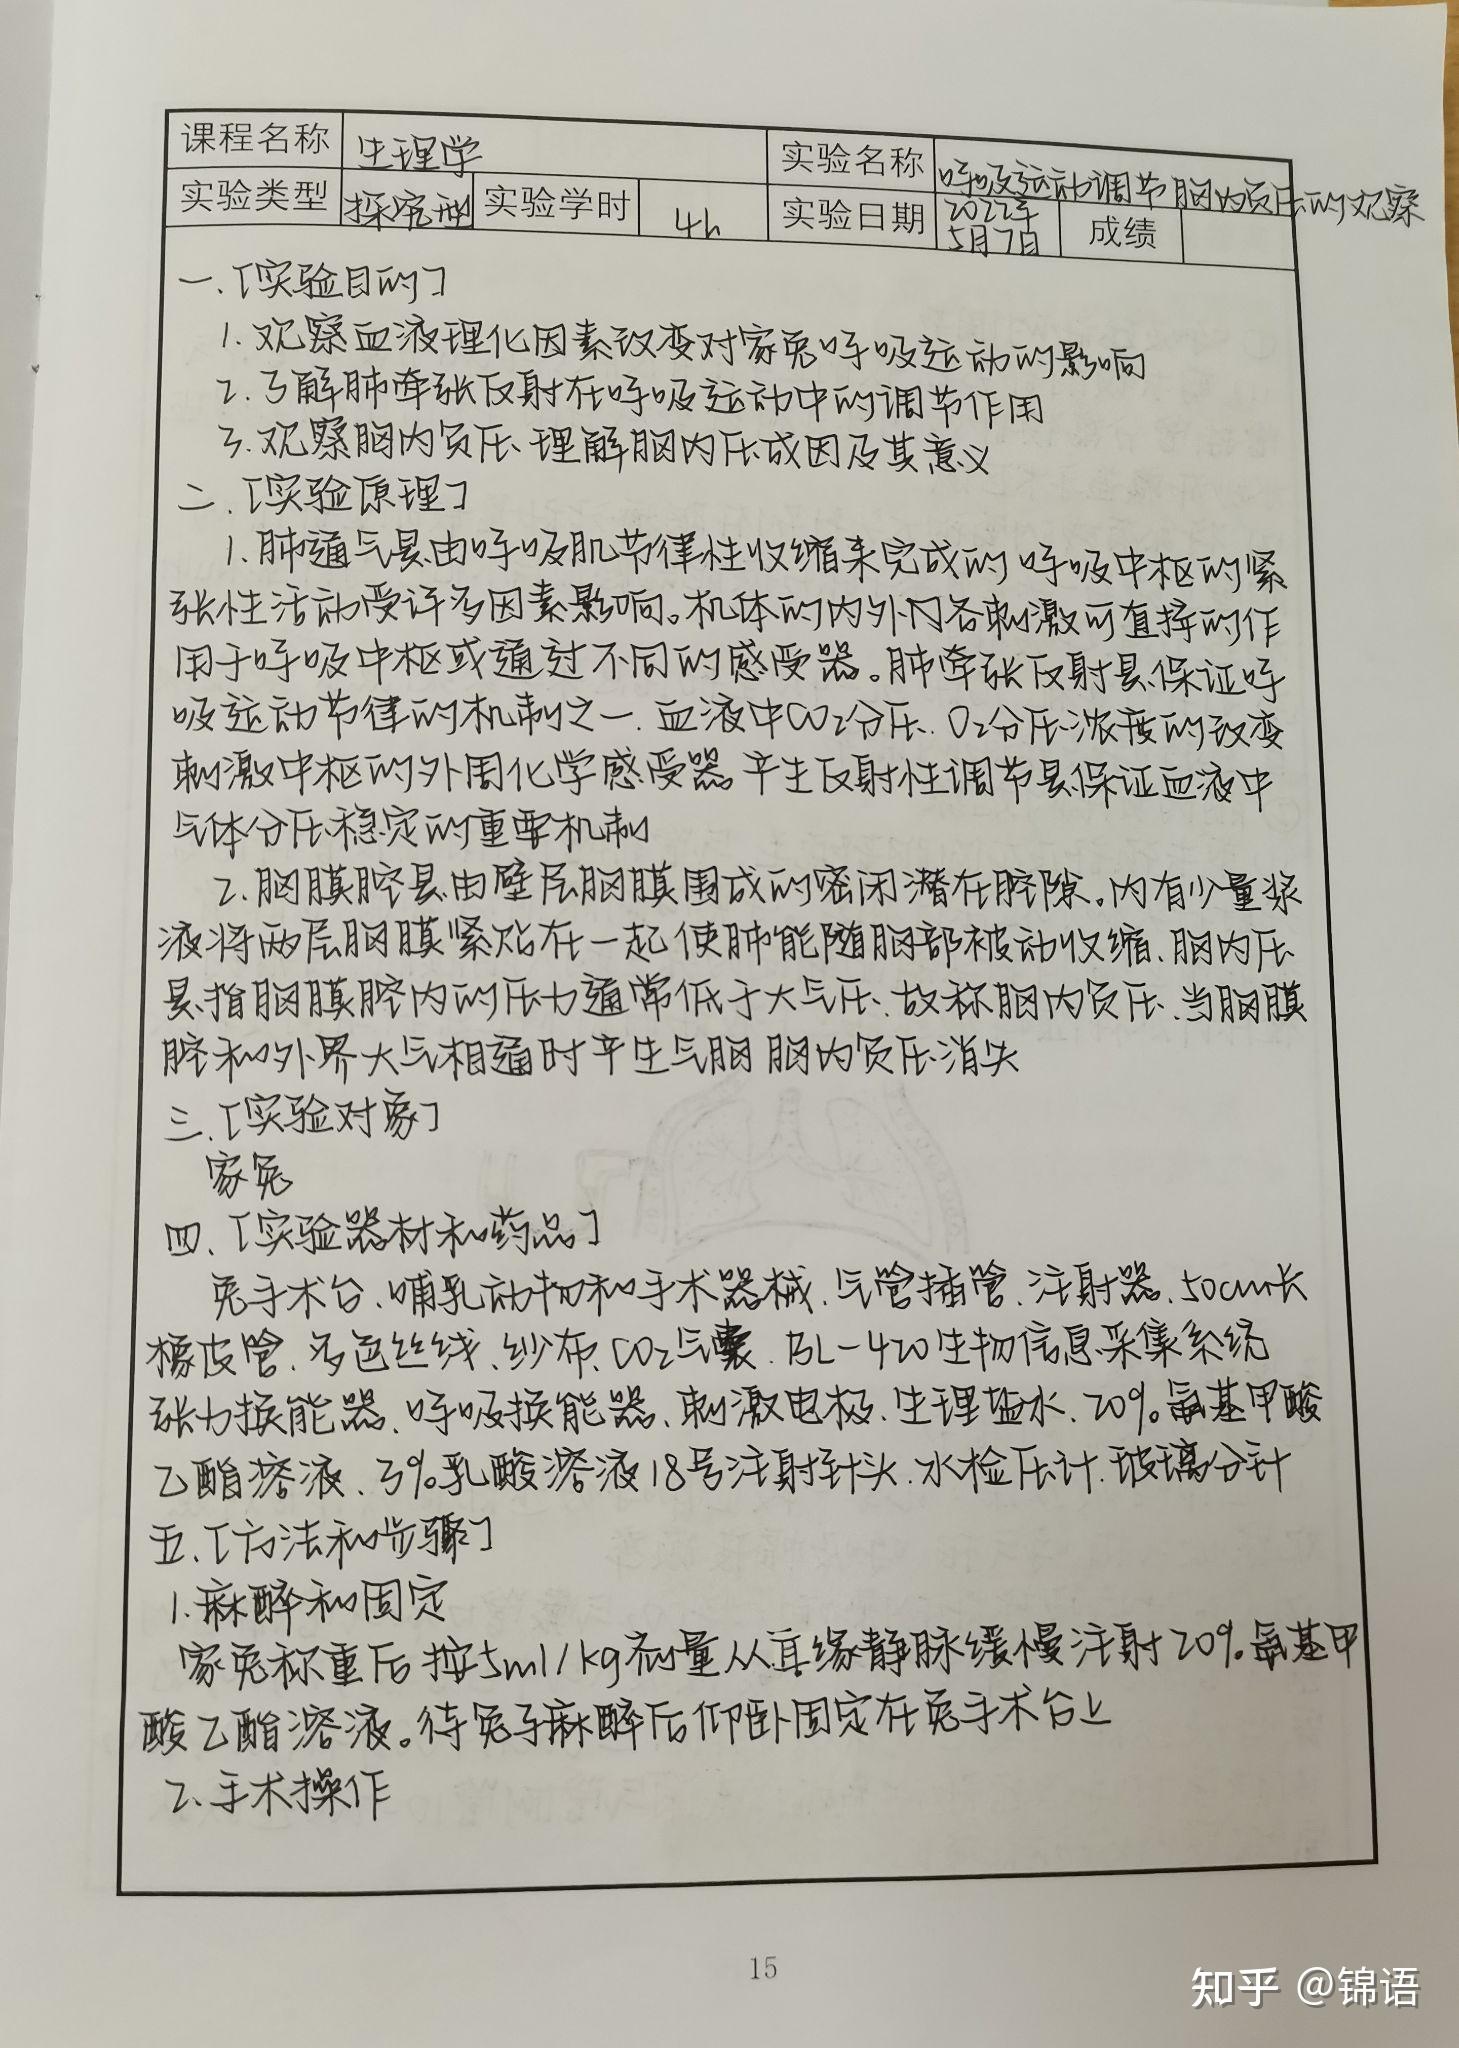 课程名称 生理学 实验名称 呼吸运动调节胸内负压的观察
实验类型 探究型 实验学时 4h 实验日期 2022年5月7日 成绩
一.[实验目的]
1.观察血液理化因素改变对家兔呼吸运动的影响
2.了解肺牵张反射在呼吸运动中的调节作用
3.观察胸内负压、理解胸内压成因及其意义
二.[实验原理]
1.肺通气是由呼吸肌节律性收缩来完成的呼吸中枢的紧
张性活动受许多因素影响。机体的内外内各刺激可直接的作
用于呼吸中枢或通过不同的感受器。肺牵张反射是保证呼
吸运动节律的机制之一.血液中CO2分压、O2分压浓度的改变
刺激中枢的外周化学感受器产生反射性调节是保证血液中
气体分压稳定的重要机制
2.胸膜腔是由壁层胸膜围成的密闭潜在腔隙。内有少量浆
液将两层胸膜紧贴在一起使肺能随胸部被动收缩、胸内压
是指胸膜腔内的压力通常低于大气压、故称胸内负压、当胸膜
腔和外界大气相通时产生气胸胸内负压消失
三.[实验对象]
家兔
四、[实验器材和药品]
兔手术台、哺乳动物和手术器械、气管插管、注射器、50cm长
橡皮管、多色丝线、纱布、CO2气囊、BL-420生物信息采集系统
张力换能器、呼吸换能器、刺激电极、生理盐水、20%氨基甲酸
乙酯溶液、3%乳酸溶液18号注射针头、水检压计、玻璃分针
五、[方法和步骤]
1.麻醉和固定
家兔称重后按5ml/kg剂量从耳缘静脉缓慢注射20%氨基甲
酸乙酯溶液。待兔子麻醉后仰卧固定在兔手术台上
2、手术操作
15
知乎 @锦语